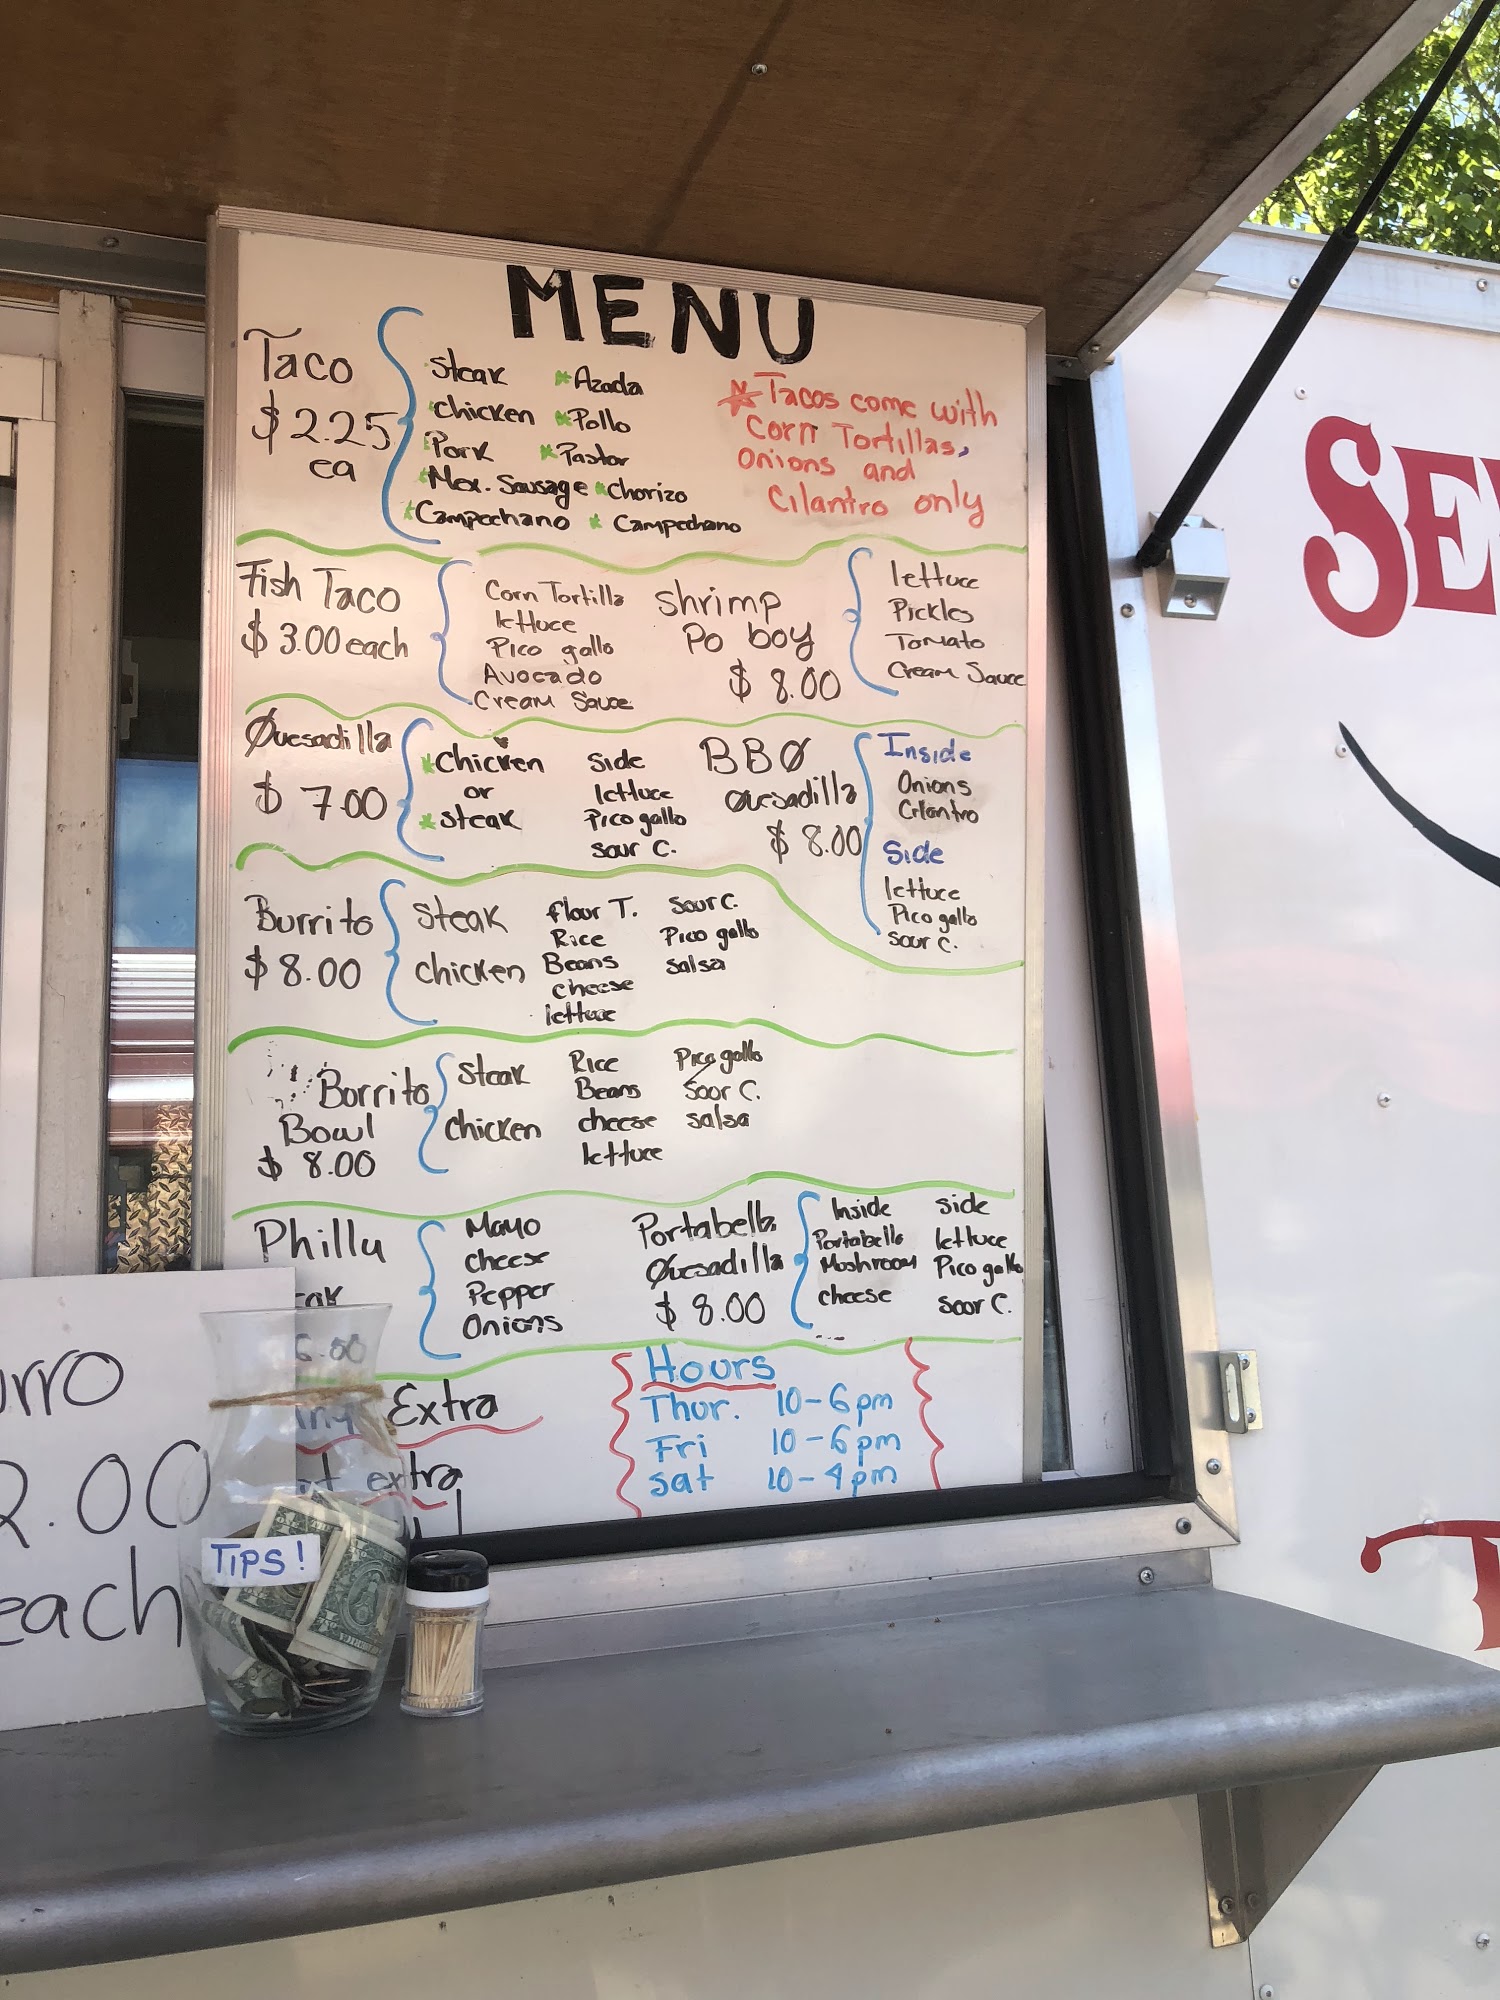 MENU
Taco
$2.25
ea
Steak *Azada
*Chicken *Pollo
*Pork *Pastor
*Mex. Sausage *Chorizo
*Campechano *Campechano
*Tacos come with
Corn Tortillas,
Onions and
Cilantro only
Fish Taco
$3.00 each
Corn Tortilla
lettuce
Pico gallo
Avocado
Cream Sauce
Shrimp
Po boy
$8.00
lettuce
Pickles
Tomato
Cream Sauce
Quesadilla
$7.00
*Chicken
or
*Steak
Side
lettuce
Pico gallo
sour C.
BBQ
Quesadilla
$8.00
Inside
Onions
Cilantro
Side
lettuce
Pico gallo
sour C.
Burrito
$8.00
Steak
chicken
flour T.
Rice
Beans
cheese
lettuce
Sour C.
Pico gallo
salsa
Borrito
Bowl
$8.00
Steak
chicken
Rice
Beans
cheese
lettuce
Pico gallo
Soor C.
salsa
Philly
6.00
Mayo
cheese
Pepper
Onions
Portabella
Quesadilla
$8.00
Inside
Portabello
Mushroom
cheese
side
lettuce
Pico gallo
soor C.
Extra
extra
Hours
Thur. 10-6pm
Fri 10-6pm
Sat 10-4pm
2.00
each
TIPS!